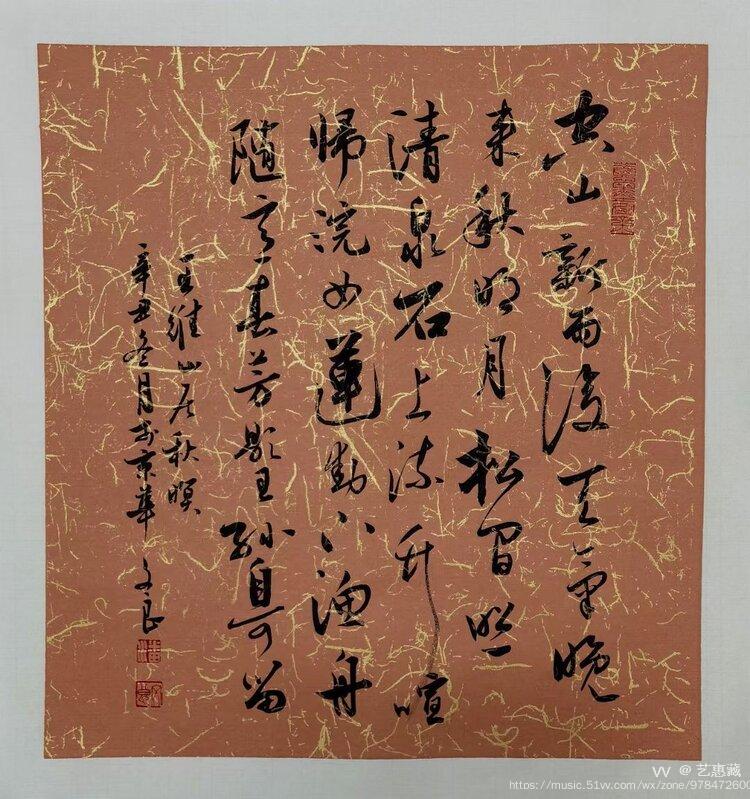 空山新雨後天氣晚
来秋明月松間照
清泉石上流竹喧
歸浣女蓮動下漁舟
隨意春芳歇王孫自可留
王維山居秋暝
辛丑冬月於京華 文良
@ 艺惠藏
https://music.51w.com/wx/zone/978472600